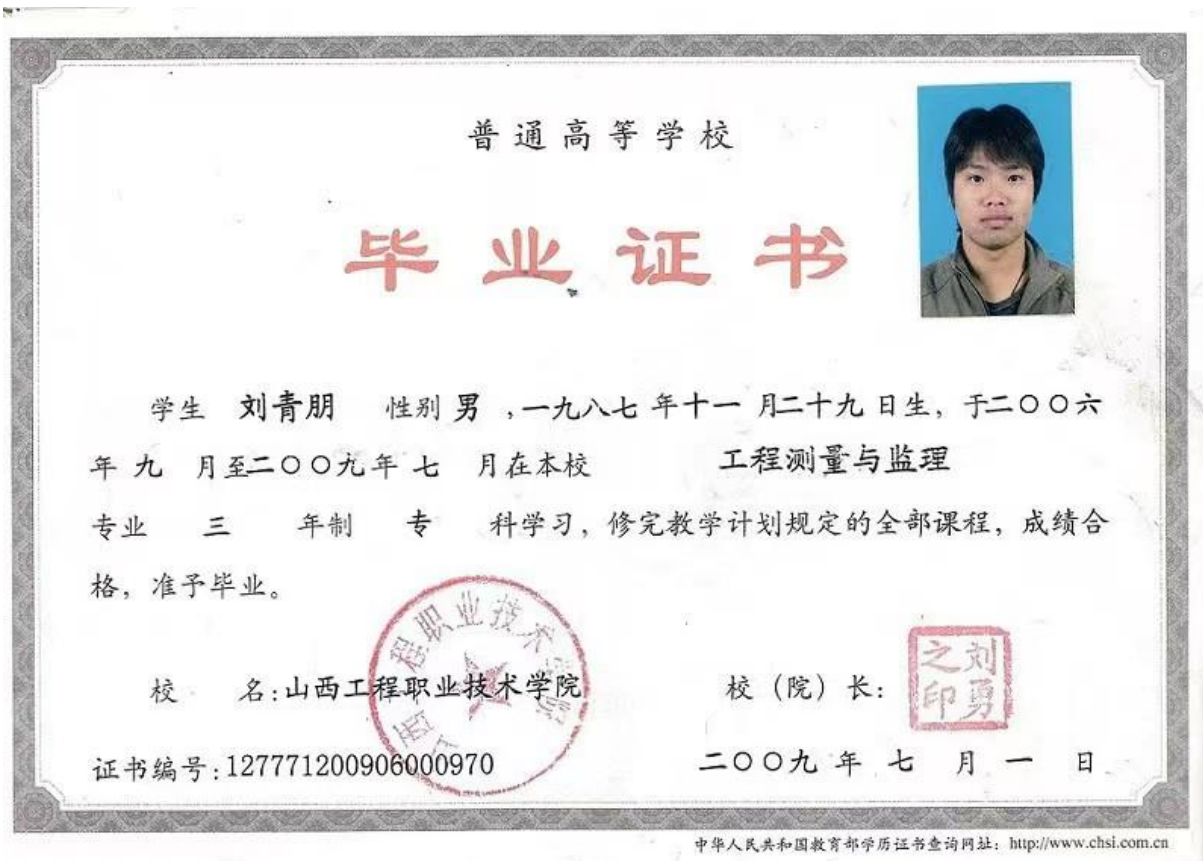 普通高等学校
毕业证书
学生 刘青朋 性别 男 ,一九八七 年十一 月二十九 日生, 于二〇〇六
年 九 月至二〇〇九年 七 月在本校 工程测量与监理
专业 三 年制 专 科学习, 修完教学计划规定的全部课程, 成绩合
格, 准予毕业。
校 名:山西工程职业技术学院
山西工程职业技术学院
校（院）长:
刘勇之印
证书编号:127771200906000970
二〇〇九 年 七 月 一 日
中华人民共和国教育部学历证书查询网址: http://www.chsi.com.cn